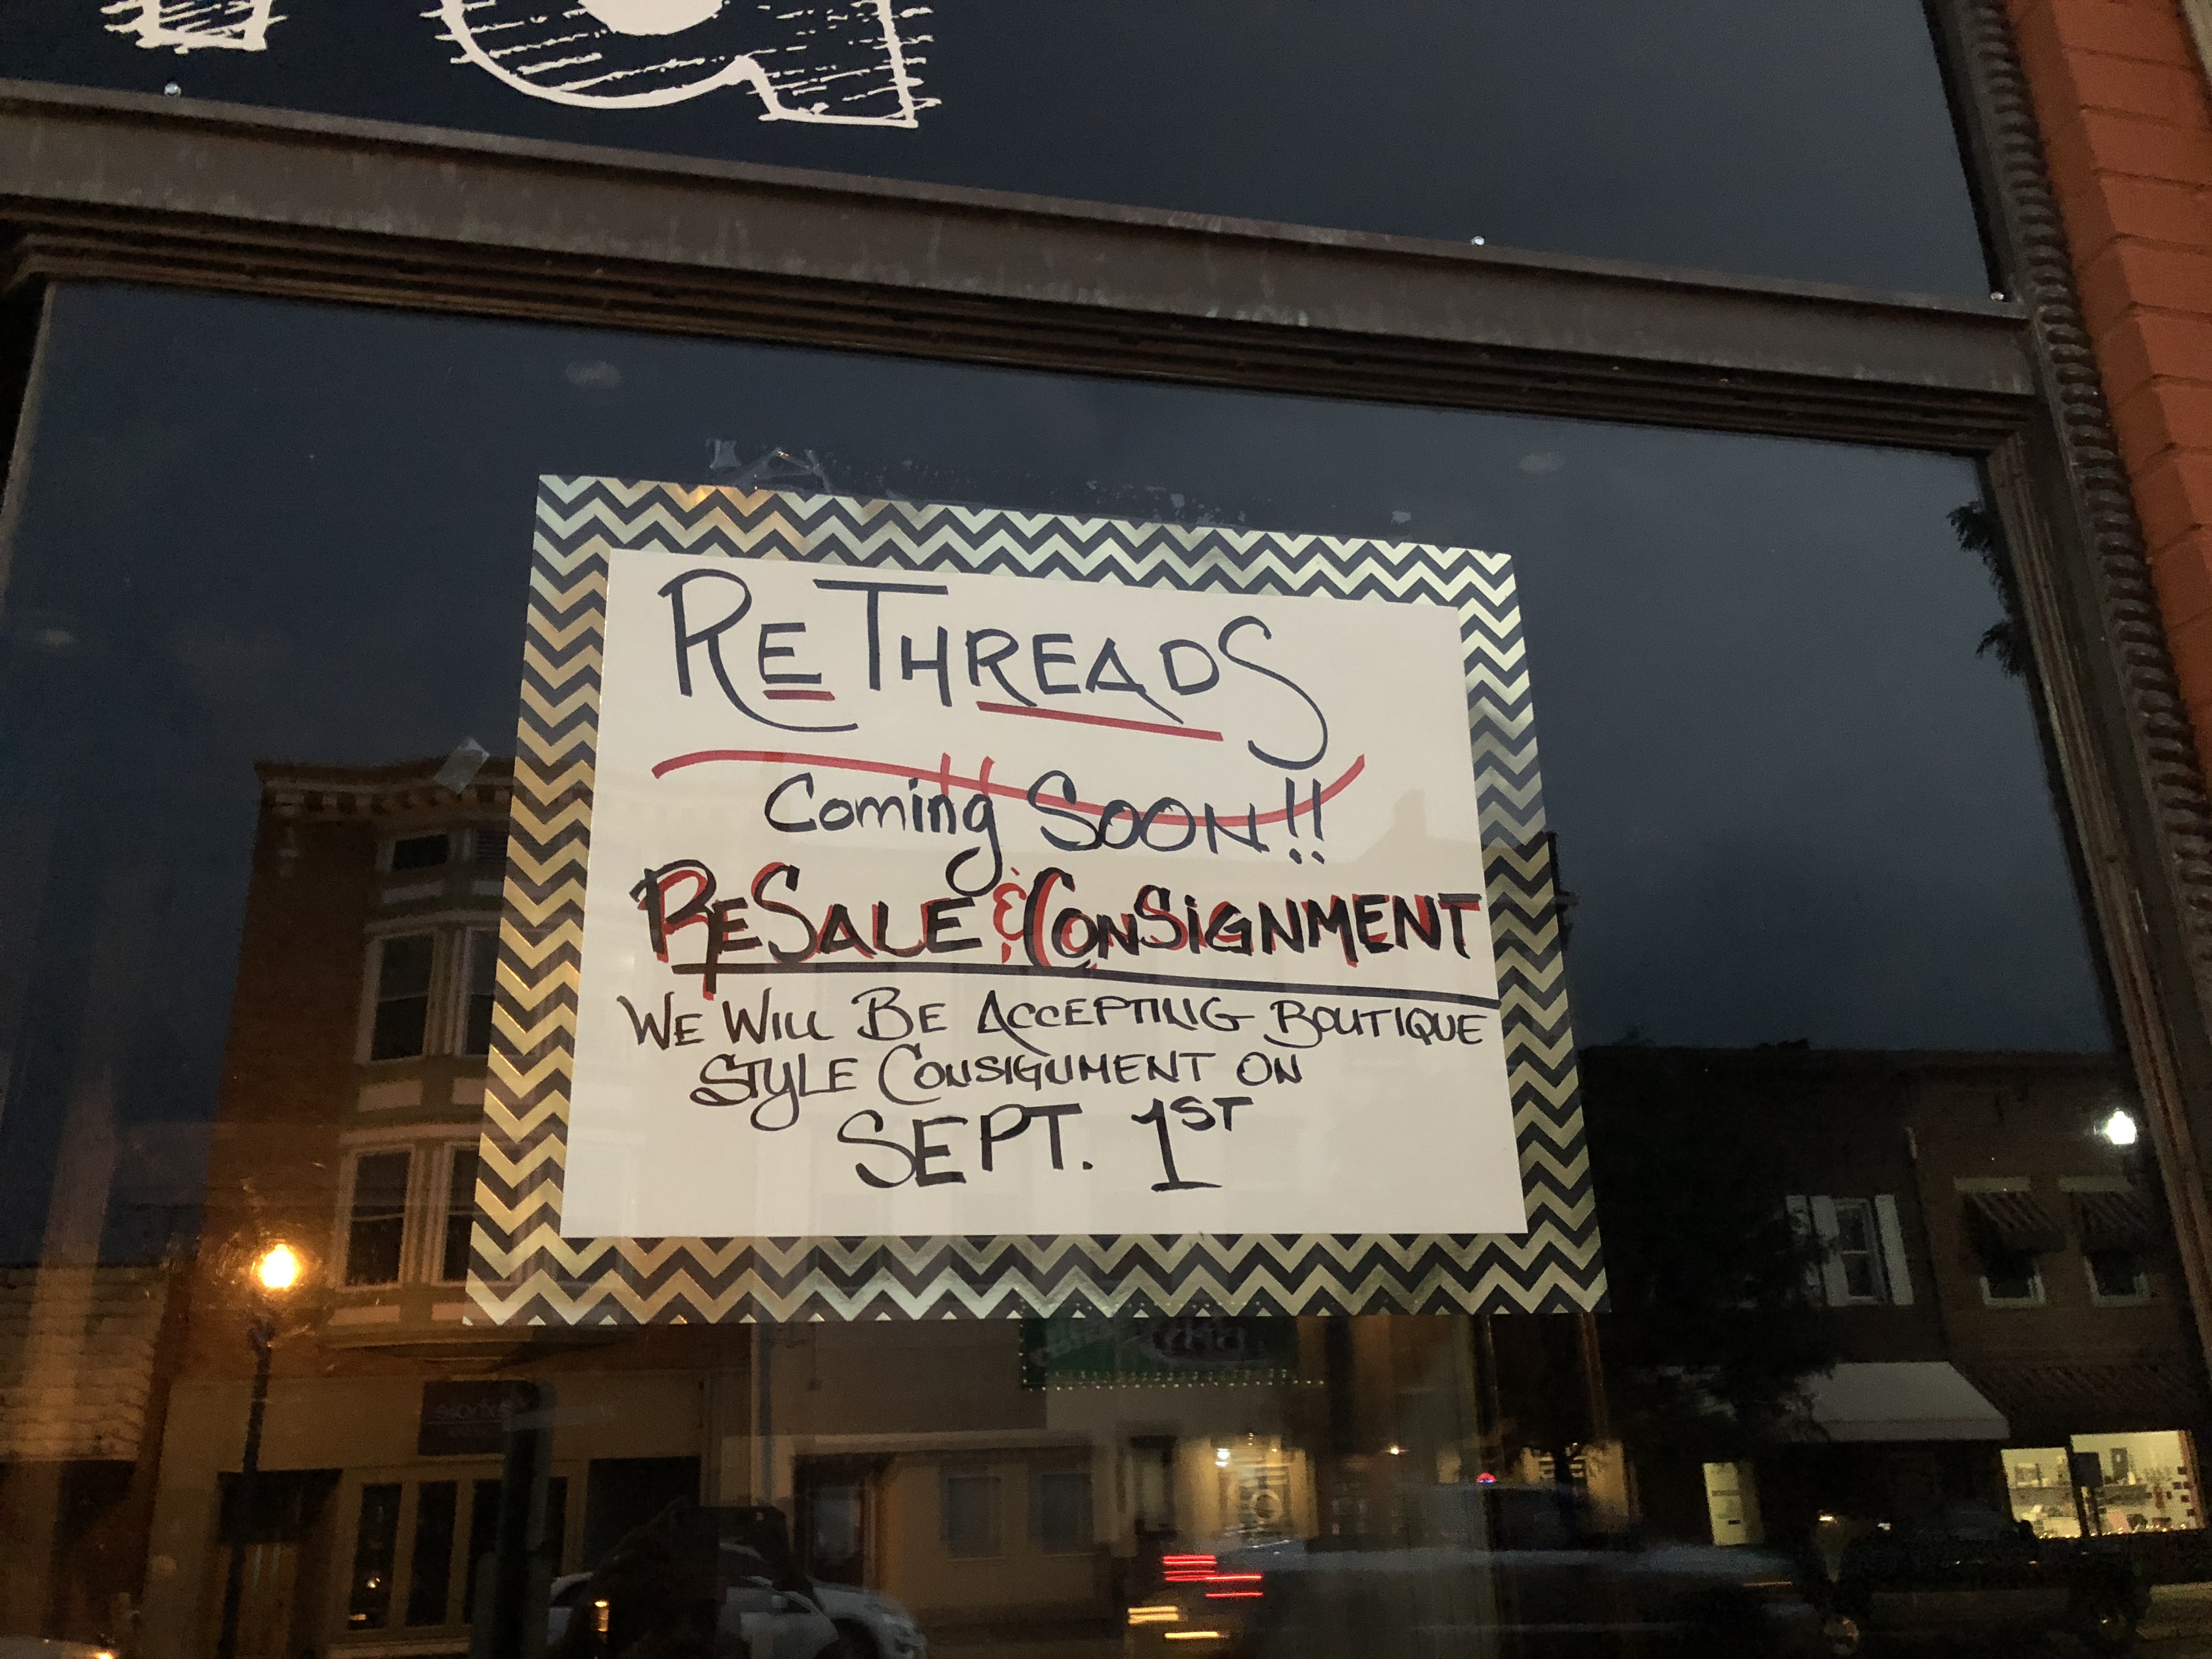 ReThreads
Coming Soon!!
ReSale & Consignment
We Will Be Accepting Boutique
Style Consignment on
Sept. 1st